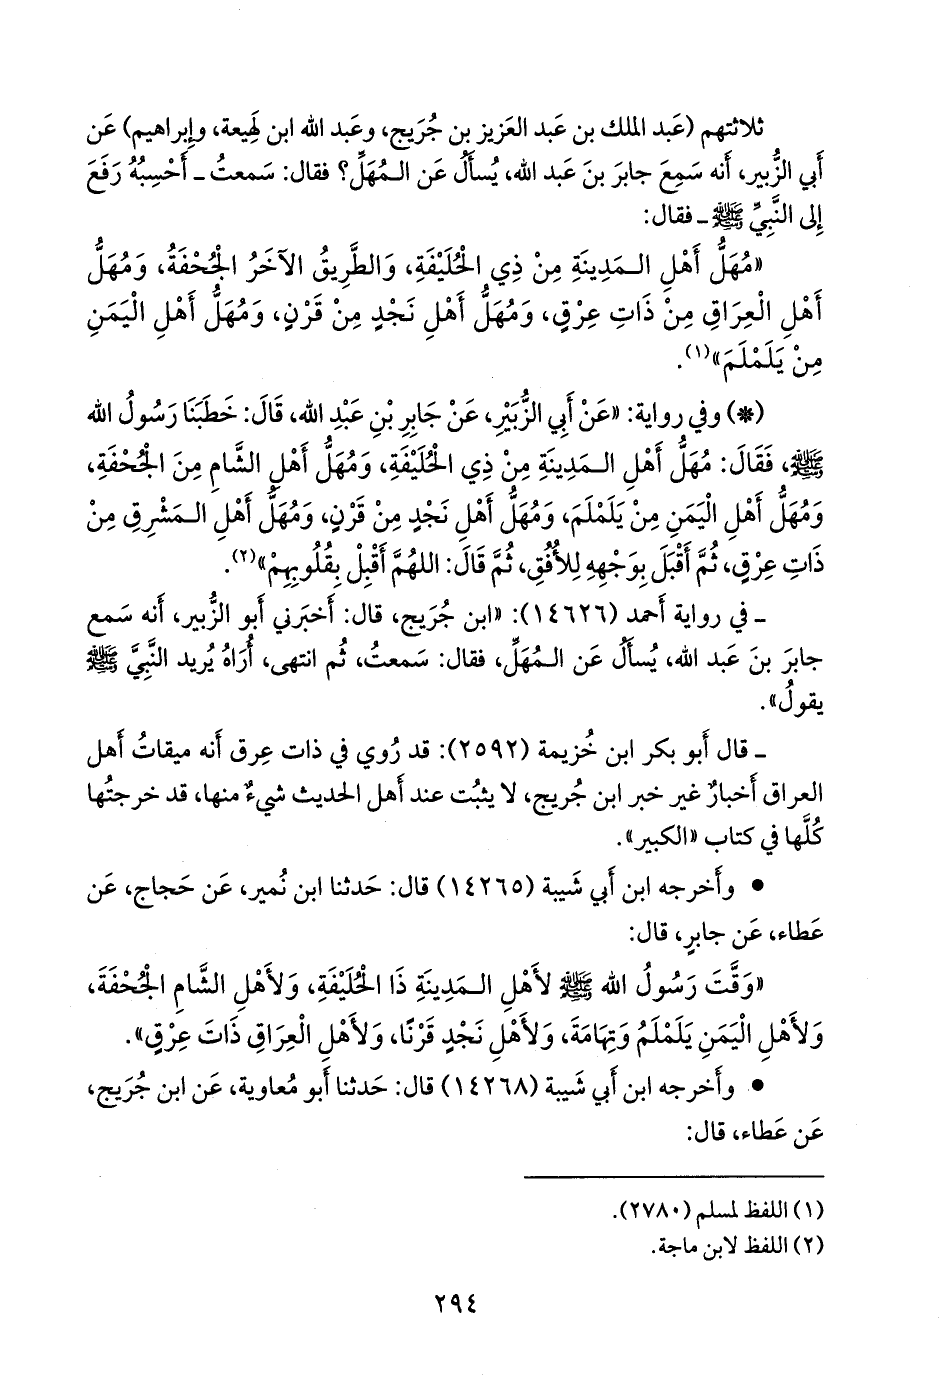 ثلاثتهم (عَبد الملك بن عَبد العَزيز بن جُرَيج، وعَبد الله ابن لَهِيعة، وإِبراهيم) عَن
أَبي الزُّبير، أَنه سَمِعَ جابرَ بنَ عَبد الله، يُسأَلُ عَن الـمُهَلِّ؟ فقال: سَمعتُ ـ أَحْسِبُهُ رَفَعَ
إِلى النَّبيِّ ﷺ ـ فقال:
«مُهَلُّ أَهْلِ الـمَدِينَةِ مِنْ ذِي الْحُلَيْفَةِ، وَالطَّرِيقُ الآخَرُ الْجُحْفَةُ، وَمُهَلُّ
أَهْلِ الْعِرَاقِ مِنْ ذَاتِ عِرْقٍ، وَمُهَلُّ أَهْلِ نَجْدٍ مِنْ قَرْنٍ، وَمُهَلُّ أَهْلِ الْيَمَنِ
مِنْ يَلَمْلَمَ»(١).
(*) وفي رواية: «عَنْ أَبِي الزُّبَيْرِ، عَنْ جَابِرِ بْنِ عَبْدِ الله، قَالَ: خَطَبَنَا رَسُولُ الله
ﷺ، فَقَالَ: مُهَلُّ أَهْلِ الـمَدِينَةِ مِنْ ذِي الْحُلَيْفَةِ، وَمُهَلُّ أَهْلِ الشَّامِ مِنَ الْجُحْفَةِ،
وَمُهَلُّ أَهْلِ الْيَمَنِ مِنْ يَلَمْلَمَ، وَمُهَلُّ أَهْلِ نَجْدٍ مِنْ قَرْنٍ، وَمُهَلُّ أَهْلِ الـمَشْرِقِ مِنْ
ذَاتِ عِرْقٍ، ثُمَّ أَقْبَلَ بِوَجْهِهِ لِلأُفُقِ، ثُمَّ قَالَ: اللهُمَّ أَقْبِلْ بِقُلُوبِهِمْ»(٢).
ـ في رواية أَحمد (١٤٦٢٦): «ابن جُرَيج، قال: أَخبَرني أَبو الزُّبير، أَنه سَمع
جابرَ بنَ عَبد الله، يُسأَلُ عَن الـمُهَلِّ، فقال: سَمعتُ، ثُم انتهى، أُرَاهُ يُريد النَّبيَّ ﷺ
يقولُ».
ـ قال أَبو بكر ابن خُزيمة (٢٥٩٢): قد رُوي في ذات عِرق أَنه ميقاتُ أَهل
العراق أَخبارٌ غير خبر ابن جُريج، لا يثبُت عند أَهل الحديث شيءٌ منها، قد خرجتُها
كُلَّها في كتاب «الكبير».
• وأَخرجه ابن أَبي شَيبة (١٤٢٦٥) قال: حَدثنا ابن نُمير، عَن حَجاج، عَن
عَطاء، عَن جابرٍ، قال:
«وَقَّتَ رَسُولُ الله ﷺ لأَهْلِ الـمَدِينَةِ ذَا الْحُلَيْفَةِ، وَلأَهْلِ الشَّامِ الْجُحْفَةَ،
وَلأَهْلِ الْيَمَنِ يَلَمْلَمُ وَتِهَامَةَ، وَلأَهْلِ نَجْدٍ قَرْنًا، وَلأَهْلِ الْعِرَاقِ ذَاتَ عِرْقٍ».
• وأَخرجه ابن أَبي شَيبة (١٤٢٦٨) قال: حَدثنا أَبو مُعاوية، عَن ابن جُرَيج،
عَن عَطاء، قال:
(١) اللفظ لمسلم (٢٧٨٠).
(٢) اللفظ لابن ماجة.
٢٩٤